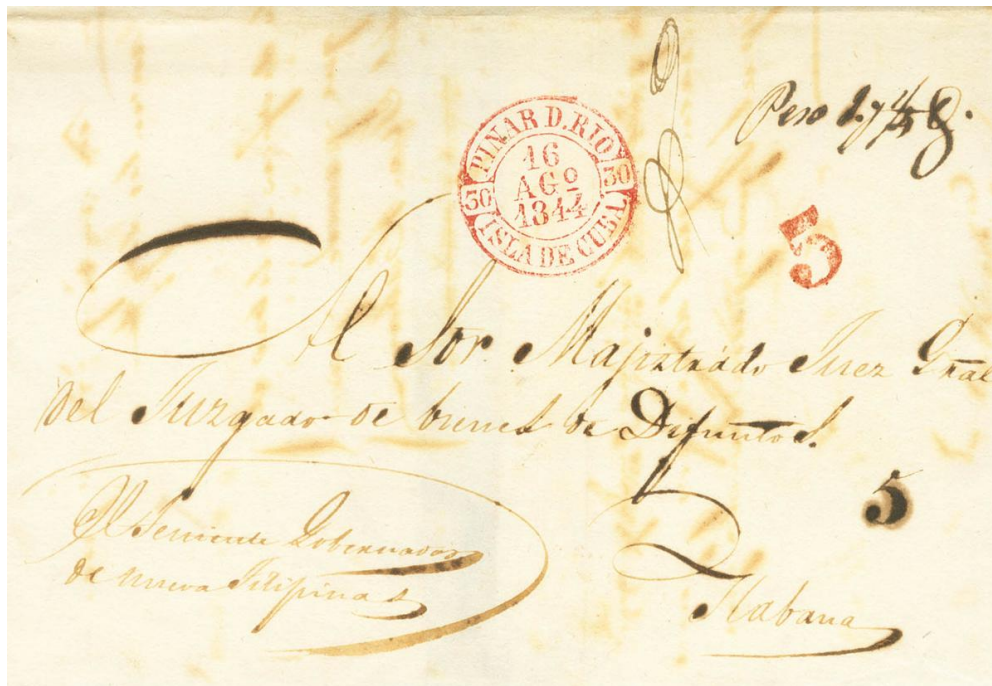 Peso 1.7
PINAR D. RIO
30 16 30
AGº
1844
ISLA DE CUBA
5
Al Sor. Majistrado Juez Gral
del Juzgado de bienes de Difuntos.
5
El Teniente Gobernador
de nueva Filipina
Habana